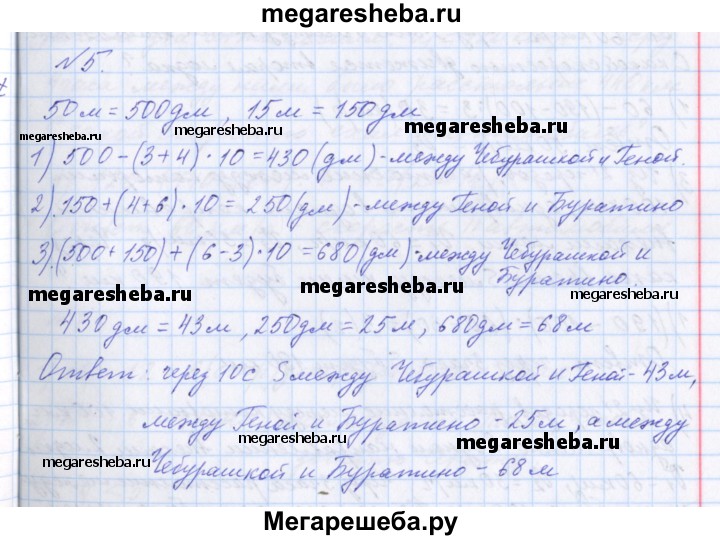 megaresheba.ru
№5.
50м = 500дм, 15м = 150дм
megaresheba.ru megaresheba.ru megaresheba.ru
1) 500 - (3+4) · 10 = 430 (дм) - между Чебурашкой и Геной.
megaresheba.ru megaresheba.ru megaresheba.ru
2) 150 + (4+6) · 10 = 250 (дм) - между Геной и Буратино
3) (500+150) + (6-3) · 10 = 680 (дм) - между Чебурашкой и
Буратино
megaresheba.ru megaresheba.ru megaresheba.ru
430дм = 43м, 250дм = 25м, 680дм = 68м
Ответ: через 10с S между Чебурашкой и Геной - 43м,
между Геной и Буратино - 25м, а между
megaresheba.ru megaresheba.ru
megaresheba.ru
Чебурашкой и Буратино - 68м
Мегарешеба.ру